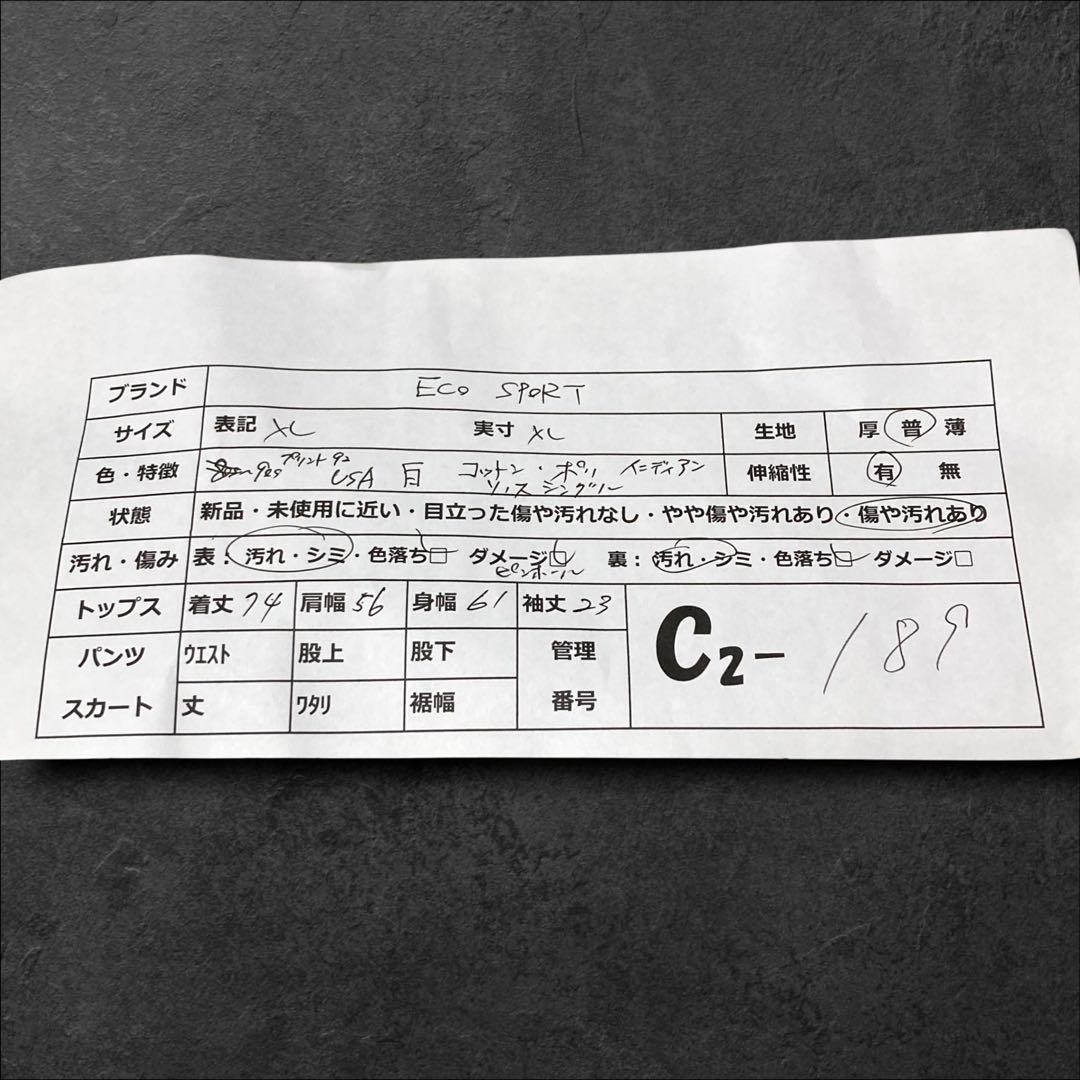 ブランド ECO SPORT
サイズ 表記 XL 実寸 XL 生地 厚 普 薄
色・特徴 プリント92 USA 白 コットン・ポリ インディアン 伸縮性 有 無
シングル
状態 新品・未使用に近い・目立った傷や汚れなし・やや傷や汚れあり・傷や汚れあり
汚れ・傷み 表:汚れ・シミ・色落ち□ ダメージ□ 裏:汚れ・シミ・色落ち□ ダメージ□
ピンホール
トップス 着丈 74 肩幅 56 身幅 61 袖丈 23
パンツ ウエスト 股上 股下 管理 C2- 189
スカート 丈 ワタリ 裾幅 番号